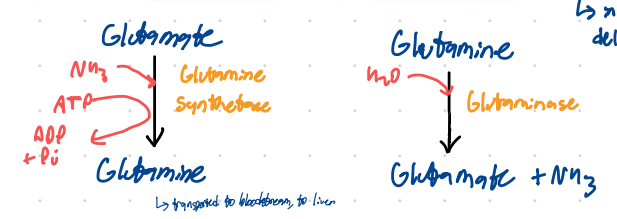 Glutamate
NH3
Glutamine
synthetase
ATP
ADP
+ Pi
Glutamine
↳ transported to bloodstream, to liver
Glutamine
H2O
Glutaminase
Glutamate + NH3
del